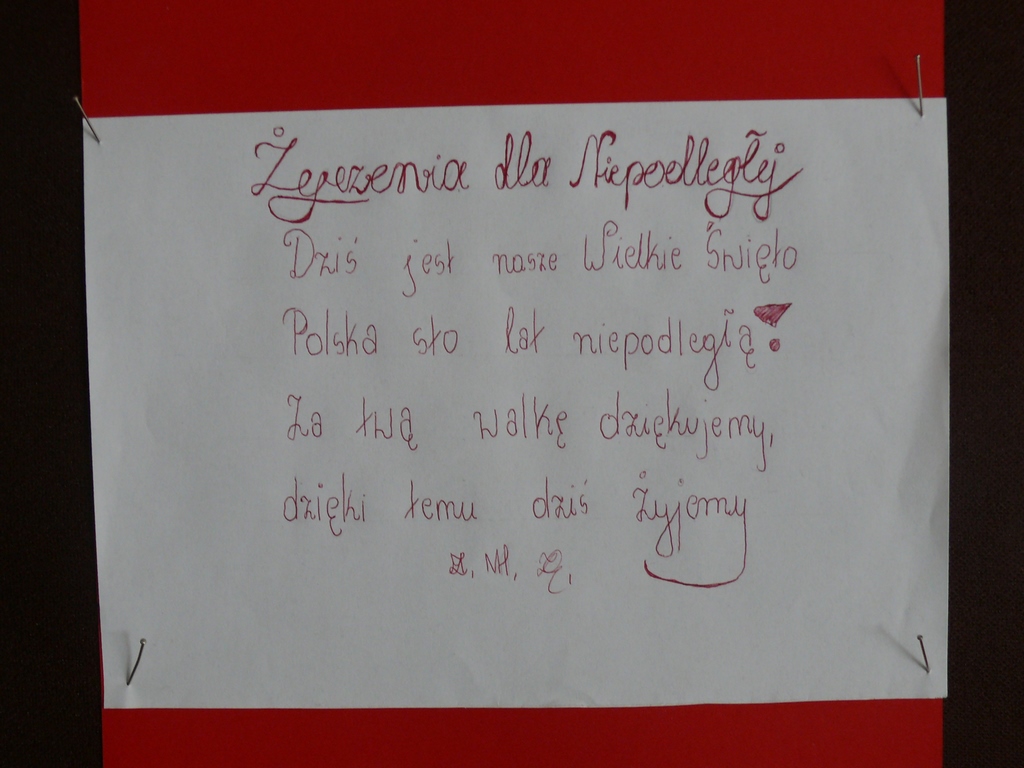 Życzenia dla Niepodległej
Dziś jest nasze Wielkie Święto
Polska sto lat niepodległą!
Za twą walkę dziękujemy,
dzięki temu dziś żyjemy